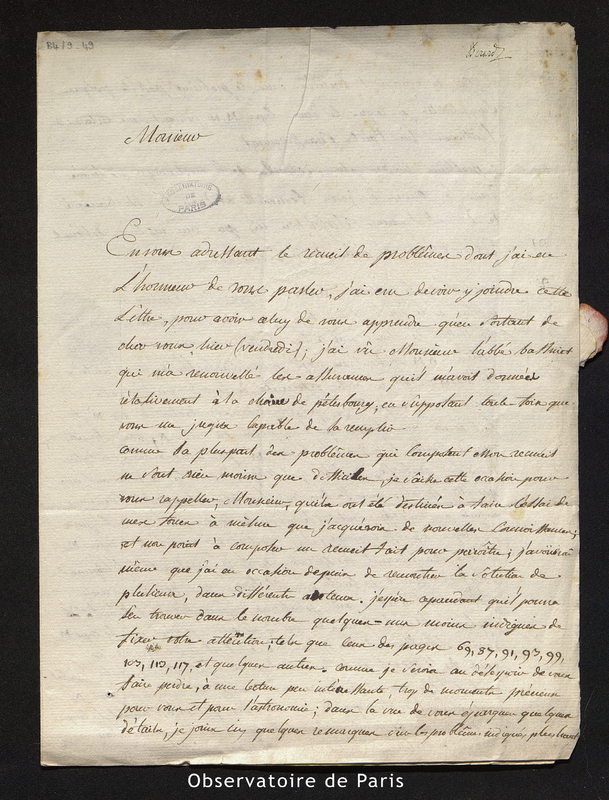 B4/9-49
Monsieur
OBSERVATOIRE
DE
PARIS
En vous adressant le recueil de problêmes dont j'ai eu
L'honneur de vous parler, j'ai cru devoir y joindre cette
Lettre, pour avoir celuy de vous apprendre qu'en sortant de
chez vous hier (vendredi); j'ai vû Monsieur l'abbé
qui m'a renouvellé les assurances qu'il m'avoit données
rélativement à la chaire de pétersbourg, en s'apportant toute fois que
vous me jugiez capable de la remplir.
comme la pluspart des problêmes qui composent mon recueil
ne sont rien moins que difficiles, je saisis cette occasion pour
vous rappeller, Monsieur, qu'ils ont été destinés à faire l'essai de
mes forces à mesure que j'acquérois de nouvelles connoissances;
et non point à composer un recueil fait pour paroître; j'avouerai
même que j'ai eu occasion depuis de rencontrer la solution de
plusieurs, dans différents auteurs. j'espère cependant qu'il pourra
s'en trouver dans le nombre quelques-uns moins indignes de
fixer votre attention; tels que ceux des pages 69, 87, 91, 93, 99,
103, 113, 117, et quelques autres. comme je serois au désespoir de vous
faire perdre, à une lecture peu intéressante, trop de moments précieux
pour vous et pour l'astronomie; dans la vue de vous épargner quelques
détails, je joins ici quelques remarques sur les problêmes indiqués plus haut
Observatoire de Paris